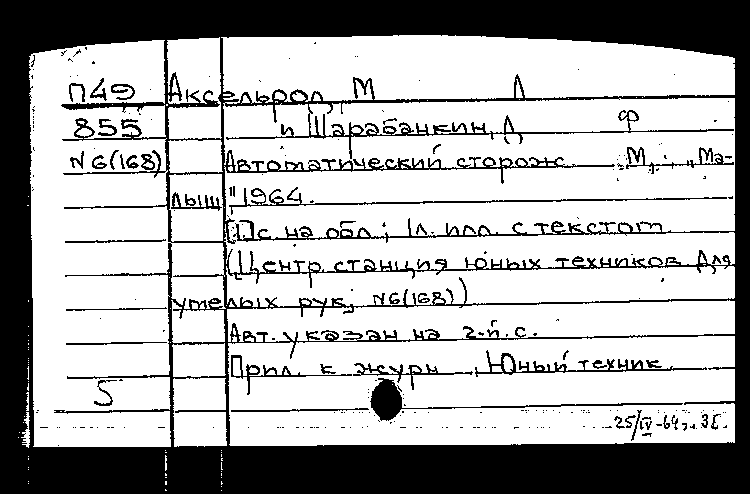 П49 Аксельрод М Л
855 и Шарабанкин, Л, Ф
N6(168) Автоматический сторож М., „Ма-
лыш" 1964.
[1]с на обл.; 1л. илл. с текстом
(Центр станция юных техников Для
умелых рук, N6(168))
Авт. указан на 2-й с.
Прил. к журн „Юный техник
5
25/IV-64г.